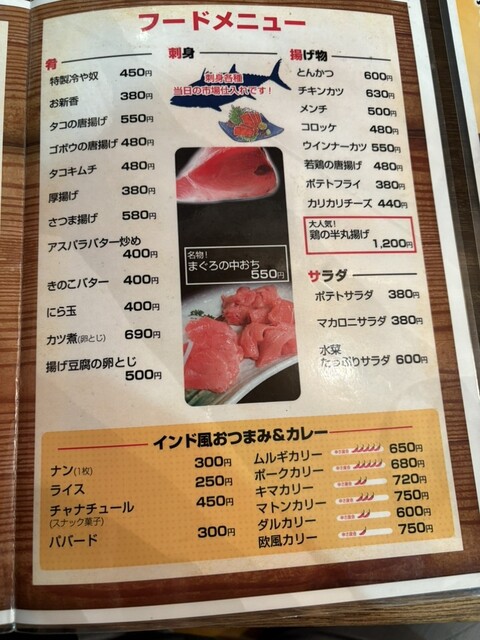 フードメニュー
肴
特製冷や奴 450円
お新香 380円
タコの唐揚げ 550円
ゴボウの唐揚げ 480円
タコキムチ 480円
厚揚げ 380円
さつま揚げ 580円
アスパラバター炒め
400円
きのこバター 400円
にら玉 400円
カツ煮(卵とじ) 690円
揚げ豆腐の卵とじ
500円
刺身
刺身各種
当日の市場仕入れです!
名物!
まぐろの中おち
550円
揚げ物
とんかつ 600円
チキンカツ 630円
メンチ 500円
コロッケ 480円
ウインナーカツ 550円
若鶏の唐揚げ 480円
ポテトフライ 380円
カリカリチーズ 440円
大人気!
鶏の半丸揚げ
1,200円
サラダ
ポテトサラダ 380円
マカロニサラダ 380円
水菜
たっぷりサラダ 600円
インド風おつまみ&カレー
ナン(1枚) 300円
ライス 250円
チャナチュール 450円
(スナック菓子)
パパード 300円
ムルギカリー 650円
ポークカリー 680円
キマカリー 720円
マトンカリー 750円
ダルカリー 600円
欧風カリー 750円